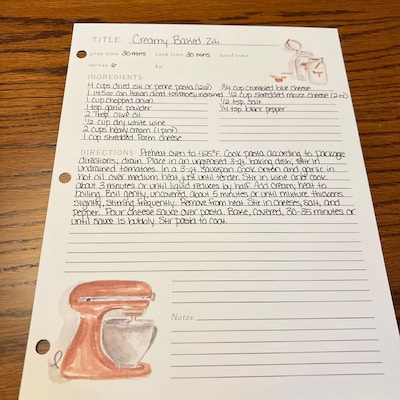 TITLE: Creamy Baked Ziti
prep time 30 mins cook time 30 mins total time
serves 6 by
INGREDIENTS:
4 cups dried ziti or penne pasta (12oz) 3/4 cup crumbled blue cheese
1 14.5oz can Italian diced tomatoes, undrained 1/2 cup shredded mozz cheese (2oz)
1 cup chopped onion 1/2 tsp salt
1 tsp garlic powder 1/4 tsp black pepper
2 Tbsp olive oil
1/2 cup dry white wine
2 cups heavy cream (1 pint)
1 cup shredded Parm cheese
DIRECTIONS: Preheat oven to 425°F. Cook pasta according to package
directions; drain. Place in an ungreased 3-qt baking dish; stir in
undrained tomatoes. In a 3-qt saucepan cook onion and garlic in
hot oil over medium heat just until tender. Stir in wine and cook
about 3 minutes or until liquid reduces by half. Add cream; heat to
boiling. Boil gently, uncovered, about 5 minutes or until mixture thickens
slightly, stirring frequently. Remove from heat. Stir in cheeses, salt, and
pepper. Pour cheese sauce over pasta. Bake, covered, 30-35 minutes or
until sauce is bubbly. Stir pasta to coat.
Notes